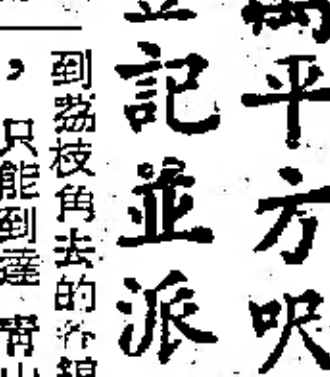 平方呎
記並派
到荔枝角去的各線
，只能到達青山